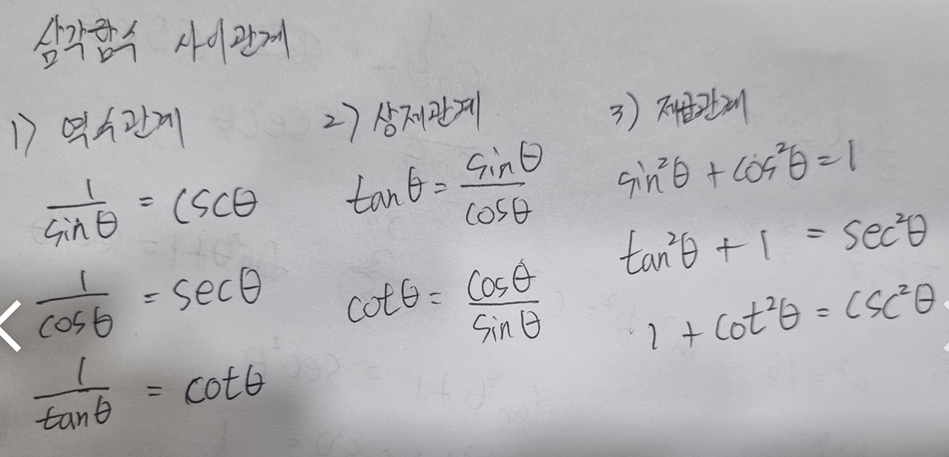 삼각함수 사이관계
1) 역수관계
1/sinθ = cscθ
1/cosθ = secθ
1/tanθ = cotθ
2) 상제관계
tanθ = sinθ/cosθ
cotθ = cosθ/sinθ
3) 제곱관계
sin²θ + cos²θ = 1
tan²θ + 1 = sec²θ
1 + cot²θ = csc²θ